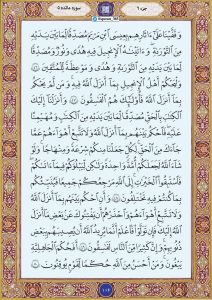 جزء ۶
سوره مائده ۵
وَقَفَّيْنَا عَلَىٰٓ ءَاثَٰرِهِم بِعِيسَى ٱبْنِ مَرْيَمَ مُصَدِّقًا لِّمَا بَيْنَ يَدَيْهِ
مِنَ ٱلتَّوْرَىٰةِ وَءَاتَيْنَٰهُ ٱلْإِنجِيلَ فِيهِ هُدًى وَنُورٌ وَمُصَدِّقًا
لِّمَا بَيْنَ يَدَيْهِ مِنَ ٱلتَّوْرَىٰةِ وَهُدًى وَمَوْعِظَةً لِّلْمُتَّقِينَ ٤٦
وَلْيَحْكُمْ أَهْلُ ٱلْإِنجِيلِ بِمَآ أَنزَلَ ٱللَّهُ فِيهِ وَمَن لَّمْ يَحْكُم
بِمَآ أَنزَلَ ٱللَّهُ فَأُو۟لَٰٓئِكَ هُمُ ٱلْفَٰسِقُونَ ٤٧ وَأَنزَلْنَآ إِلَيْكَ
ٱلْكِتَٰبَ بِٱلْحَقِّ مُصَدِّقًا لِّمَا بَيْنَ يَدَيْهِ مِنَ ٱلْكِتَٰبِ وَمُهَيْمِنًا
عَلَيْهِ فَٱحْكُم بَيْنَهُم بِمَآ أَنزَلَ ٱللَّهُ وَلَا تَتَّبِعْ أَهْوَآءَهُمْ عَمَّا
جَآءَكَ مِنَ ٱلْحَقِّ لِكُلٍّ جَعَلْنَا مِنكُمْ شِرْعَةً وَمِنْهَاجًا وَلَوْ
شَآءَ ٱللَّهُ لَجَعَلَكُمْ أُمَّةً وَٰحِدَةً وَلَٰكِن لِّيَبْلُوَكُمْ فِى مَآ ءَاتَىٰكُمْ
فَٱسْتَبِقُوا۟ ٱلْخَيْرَٰتِ إِلَى ٱللَّهِ مَرْجِعُكُمْ جَمِيعًا فَيُنَبِّئُكُم
بِمَا كُنتُمْ فِيهِ تَخْتَلِفُونَ ٤٨ وَأَنِ ٱحْكُم بَيْنَهُم بِمَآ أَنزَلَ ٱللَّهُ
وَلَا تَتَّبِعْ أَهْوَآءَهُمْ وَٱحْذَرْهُمْ أَن يَفْتِنُوكَ عَنۢ بَعْضِ مَآ أَنزَلَ
ٱللَّهُ إِلَيْكَ فَإِن تَوَلَّوْا۟ فَٱعْلَمْ أَنَّمَا يُرِيدُ ٱللَّهُ أَن يُصِيبَهُم بِبَعْضِ
ذُنُوبِهِمْ وَإِنَّ كَثِيرًا مِّنَ ٱلنَّاسِ لَفَٰسِقُونَ ٤٩ أَفَحُكْمَ ٱلْجَٰهِلِيَّةِ
يَبْغُونَ وَمَنْ أَحْسَنُ مِنَ ٱللَّهِ حُكْمًا لِّقَوْمٍ يُوقِنُونَ ٥٠
١١٦